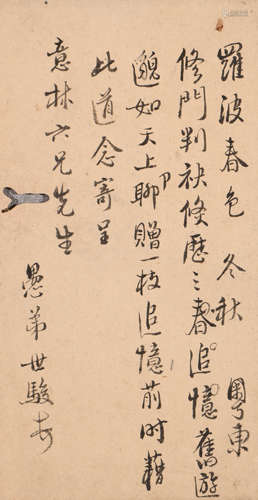 羅波春色 冬秋 粤東
修門判袂倏歷三春追憶舊遊
邈如天上聊贈一枝追憶前時藉
此道念寄呈
意林六兄先生
愚弟世駿